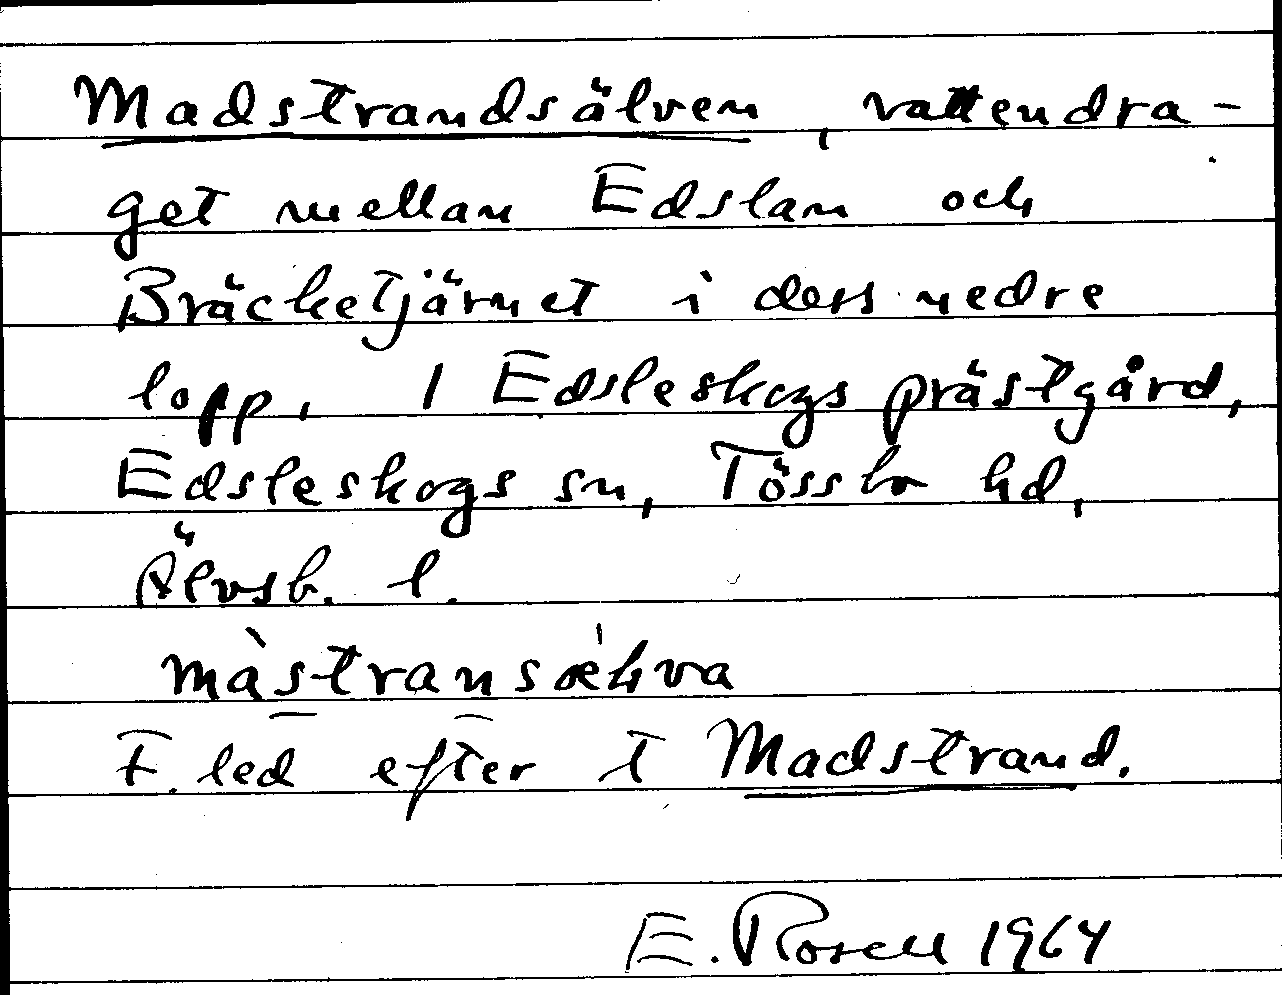 Madstrandsälven, vattendra-
get mellan Edslan och
Bräcketjärnet i dess nedre
lopp, I Edsleskogs prästgård,
Edsleskogs sn, Tössbo hd,
Älvsb. l.
màstransǽlva
F. led efter t Madstrand.
E. Rosell 1964